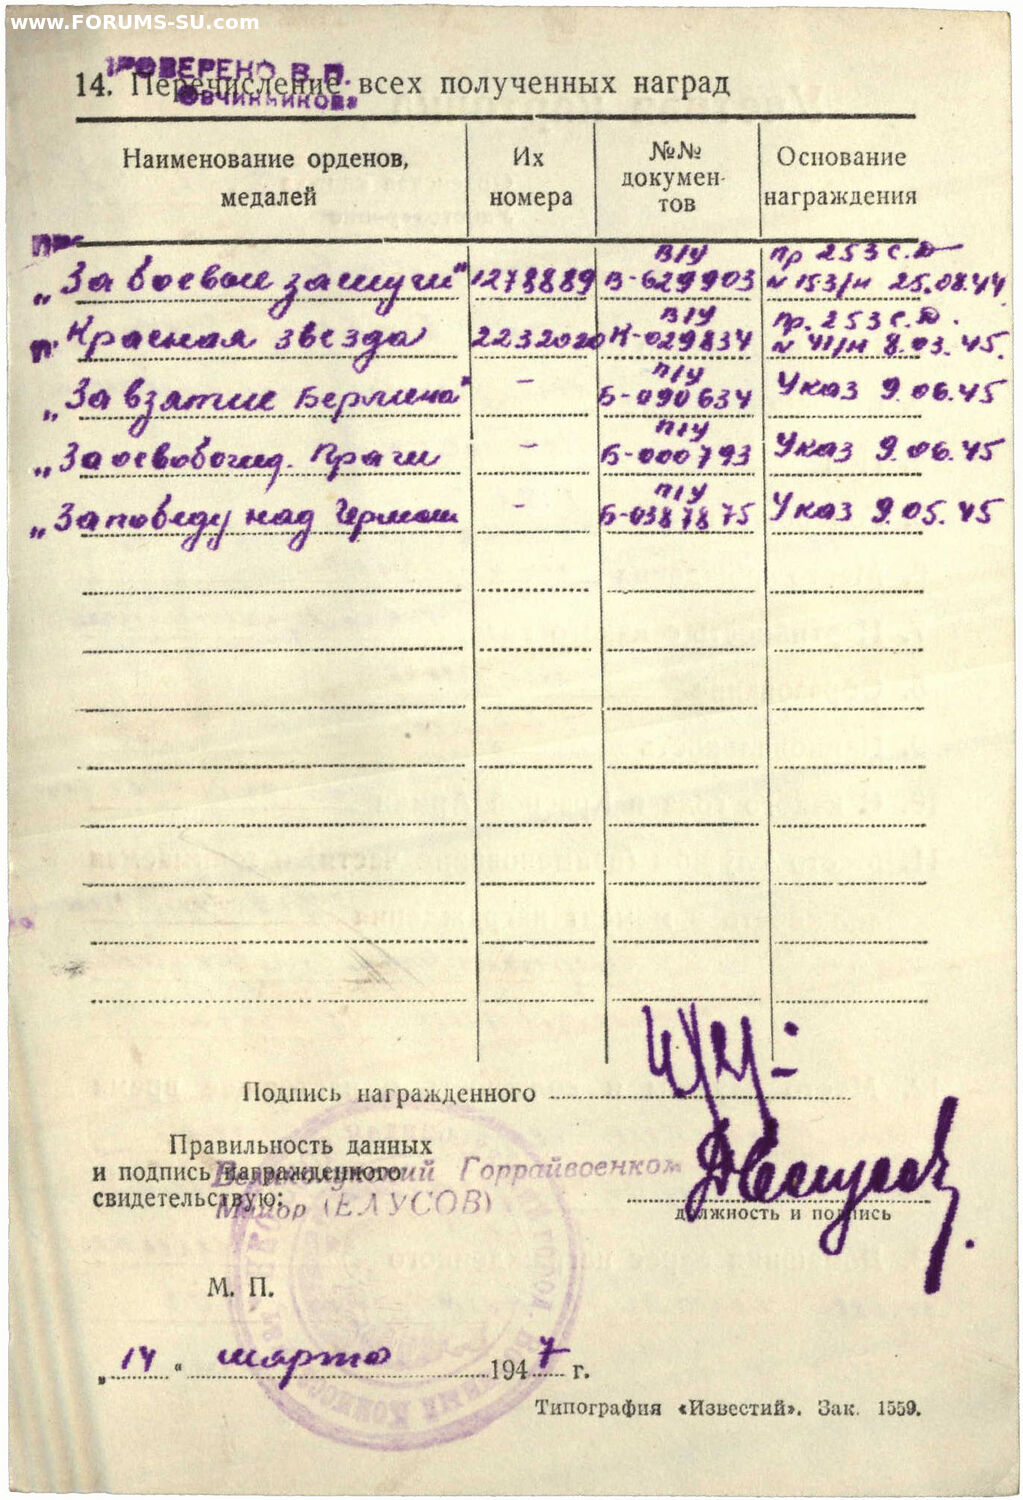 www.FORUMS-SU.com
ПРОВЕРЕНО В. П.
ОВЧИННИКОВА
14. Перечисление всех полученных наград
Наименование орденов, медалей
Их номера
№№ докумен-тов
Основание награждения
„За боевые заслуги" 1278889 В/У В-629903 пр 253 с.д. N 153/н 25.08.44
Красная звезда 2232020 В/У К-029834 пр. 253 с.д. N 41/н 8.03.45.
„За взятие Берлина" - П/У Б-090634 Указ 9.06.45
„За освобожд. Праги - П/У Б-000793 Указ 9.06.45
„За победу над Герман - П/У Б-0387875 Указ 9.05.45
Подпись награжденного
Правильность данных
и подпись награжденного
свидетельствую:
Горрайвоенком
Майор (БЛУСОВ)
должность и подпись
М. П.
„14" марта 1947 г.
Типография «Известий». Зак. 1559.